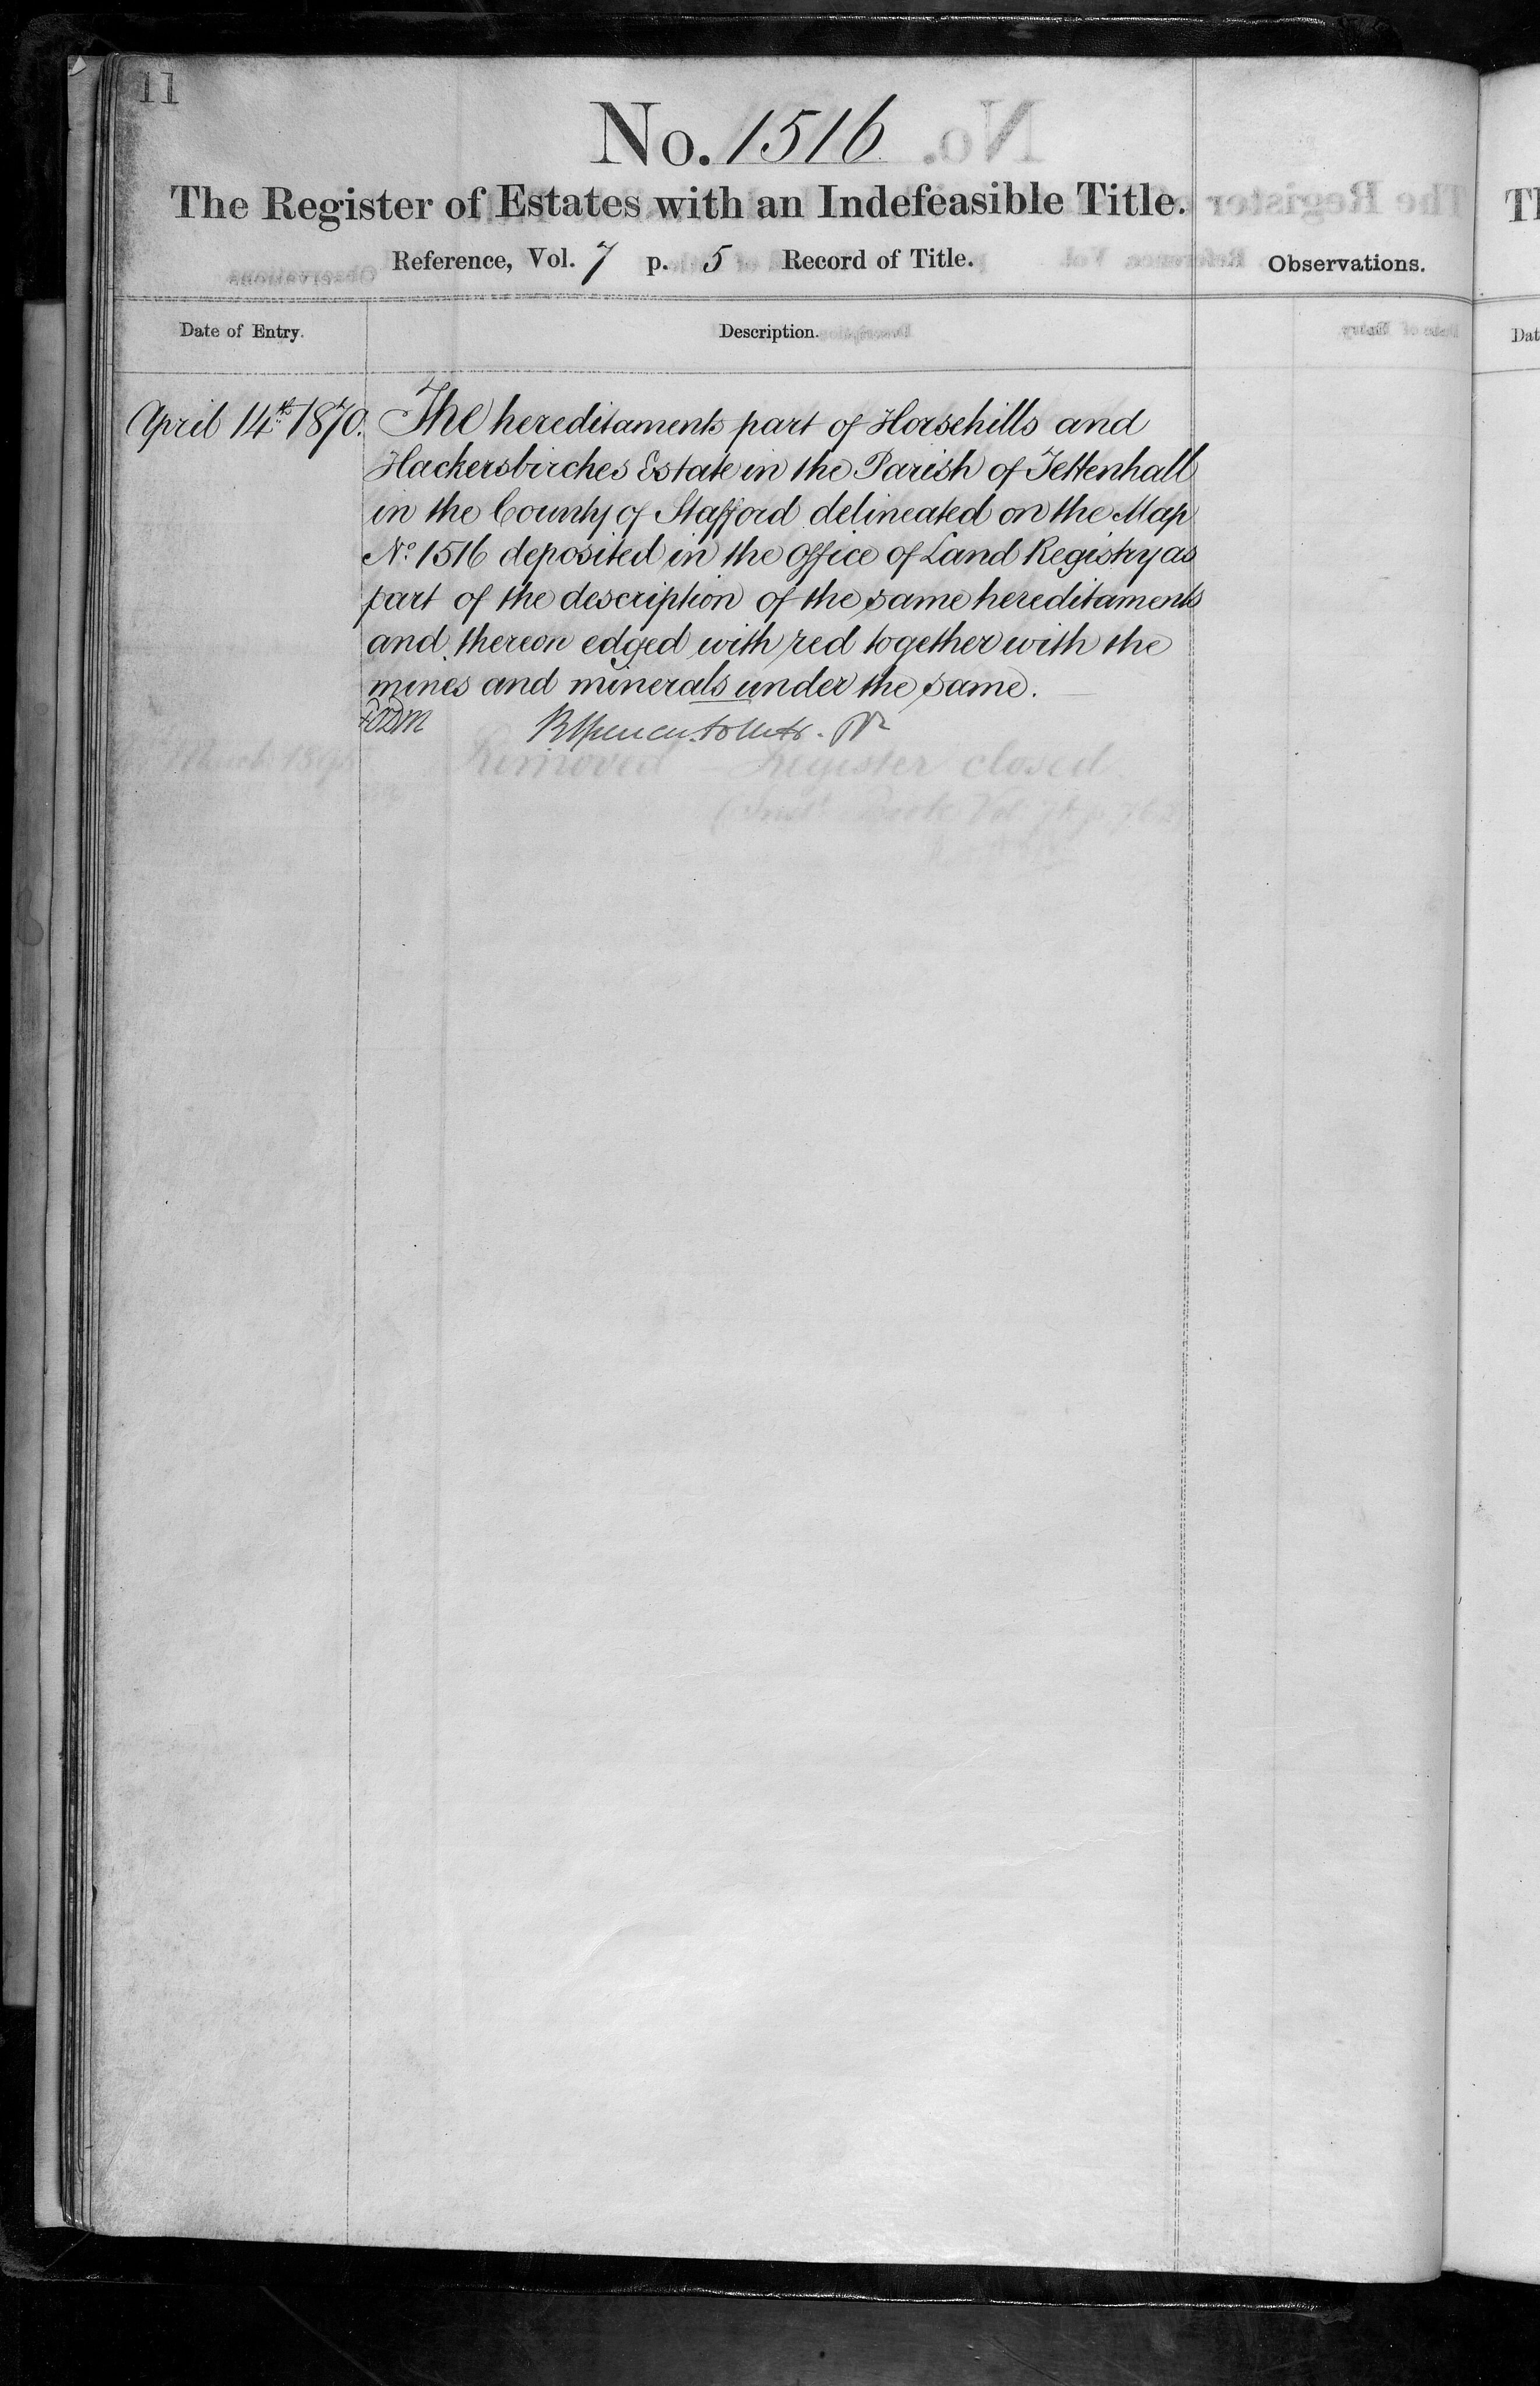 11
No. 1516
The Register of Estates with an Indefeasible Title.
Reference, Vol. 7 p. 5 Record of Title.
Observations.
Date of Entry.
Description.
April 14th 1870.
The hereditaments part of Horsehills and
Hackersbirches Estate in the Parish of Tettenhall
in the County of Stafford delineated on the Map
No 1516 deposited in the Office of Land Registry as
part of the description of the same hereditaments
and thereon edged with red together with the
mines and minerals under the same.
March
Removed - Register closed.
Book Vol
Th
Dat